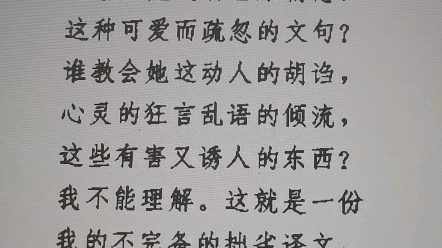 这种可爱而疏忽的文句？
谁教会她这动人的胡诌，
心灵的狂言乱语的倾流，
这些有害又诱人的东西？
我不能理解。这就是一份
我的不完备的拙劣译文